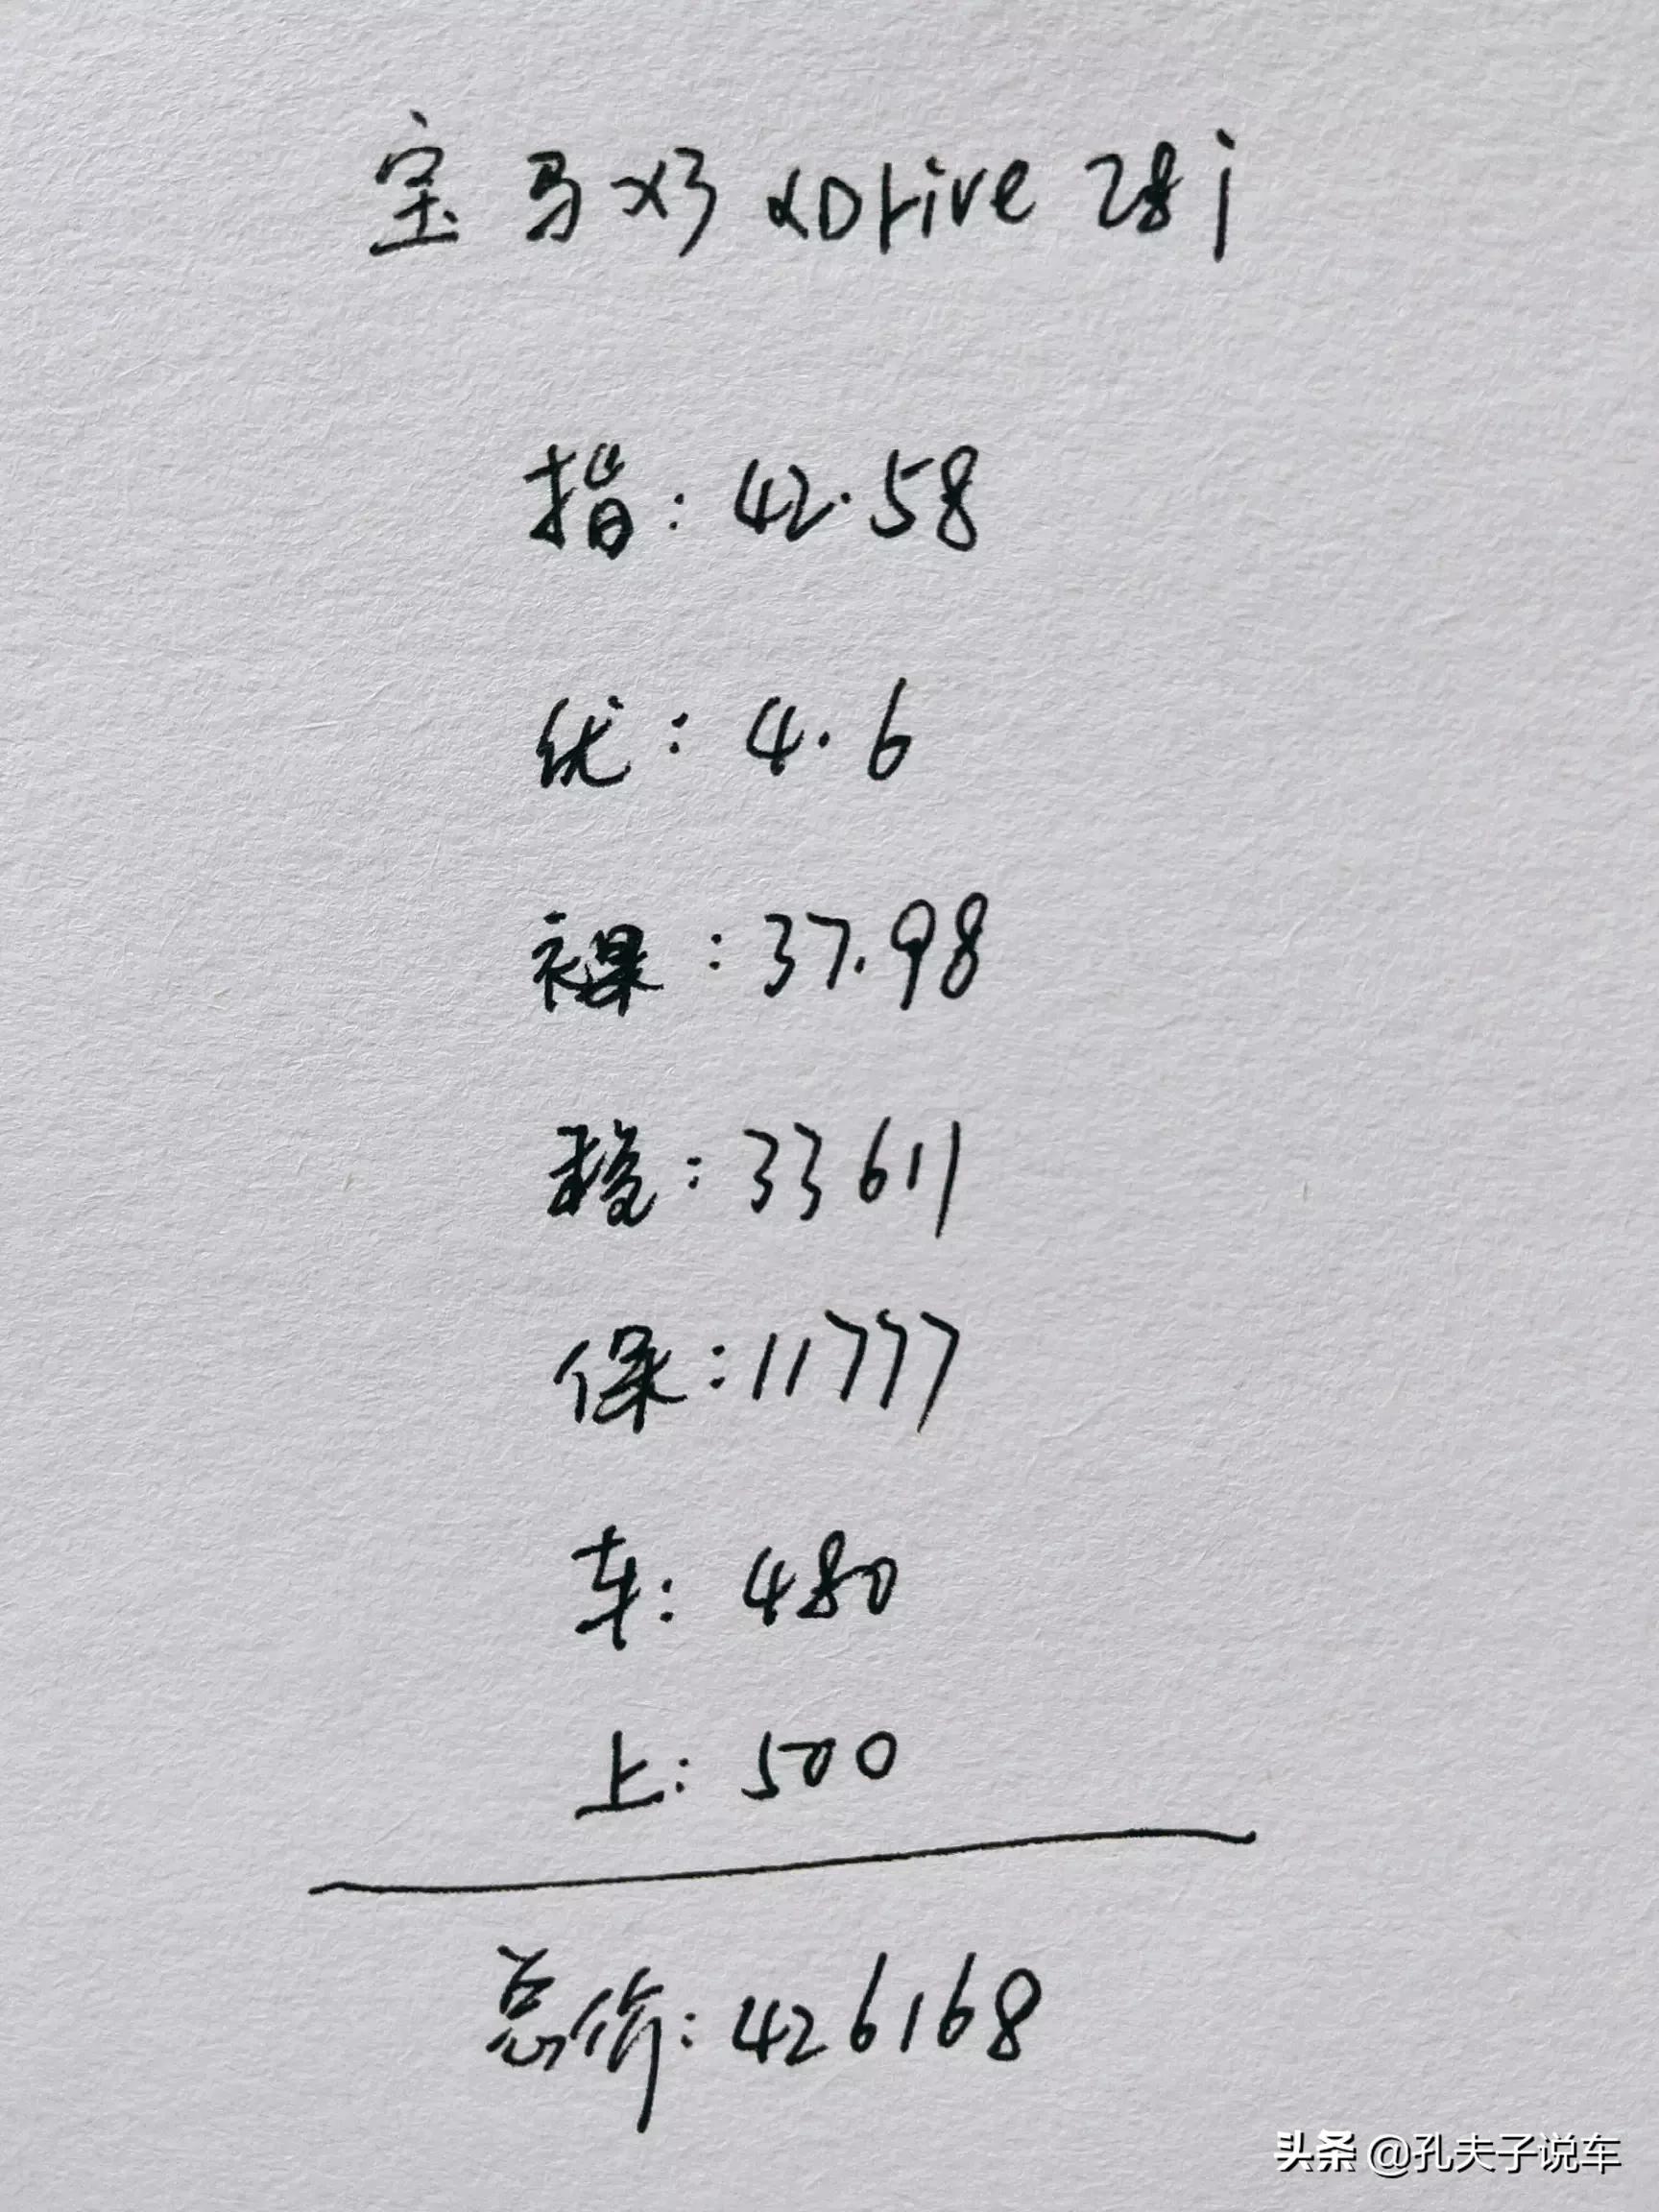 宝马X3 xDrive 28i
指：42.58
优：4.6
裸：37.98
税：33611
保：11777
车：480
上：500
总价：426168
头条 @孔夫子说车